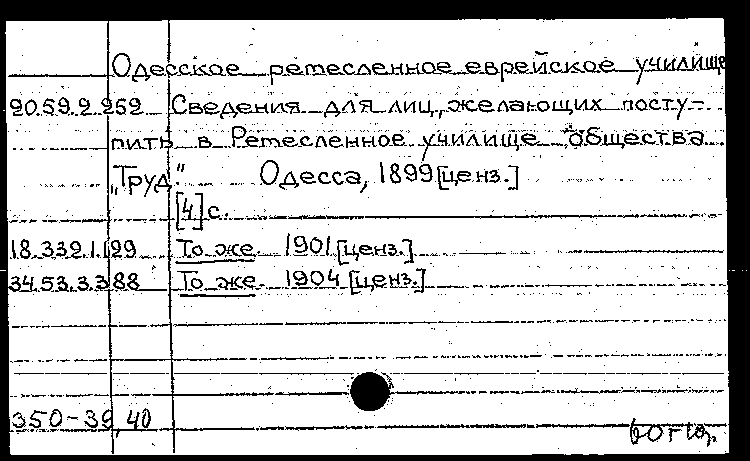 Одесское ремесленное еврейское училище
20.59.2.252 Сведения для лиц, желающих посту-
пить в Ремесленное училище общества
„Труд." Одесса, 1899 [ценз.]
[4] с.
18.339.1.199 То же. 1901 [ценз.]
34.53.3.388 То же. 1904 [ценз.]
350-39,40